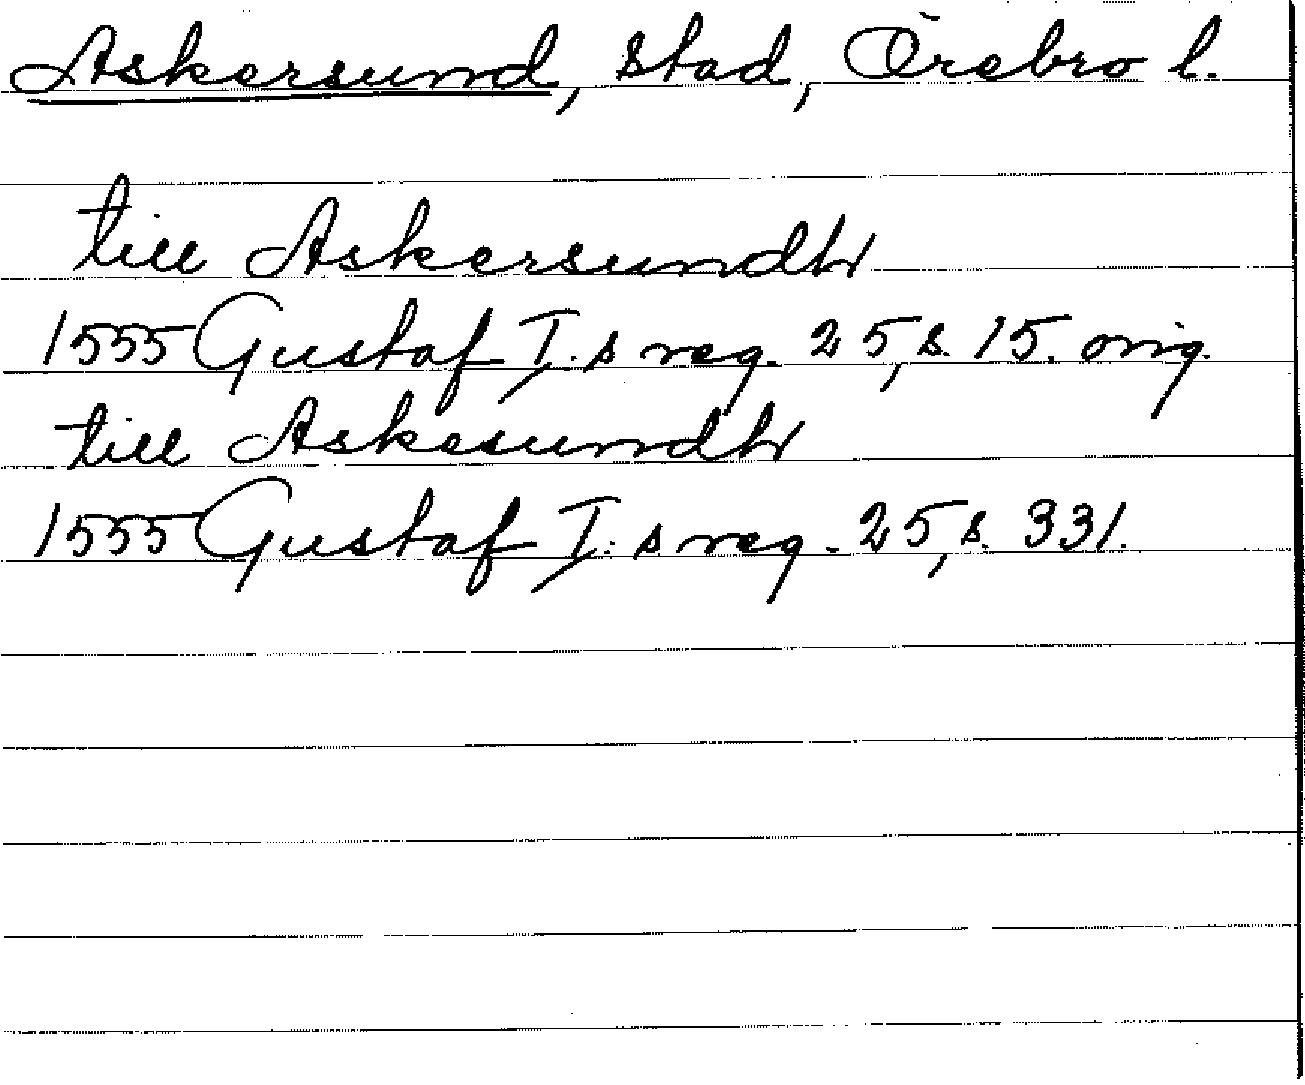 Askersund, stad, Örebro l.
till Askersundh
1555 Gustaf I:s reg. 25, s. 15. orig.
till Askesundh
1555 Gustaf I:s reg. 25, s. 331.